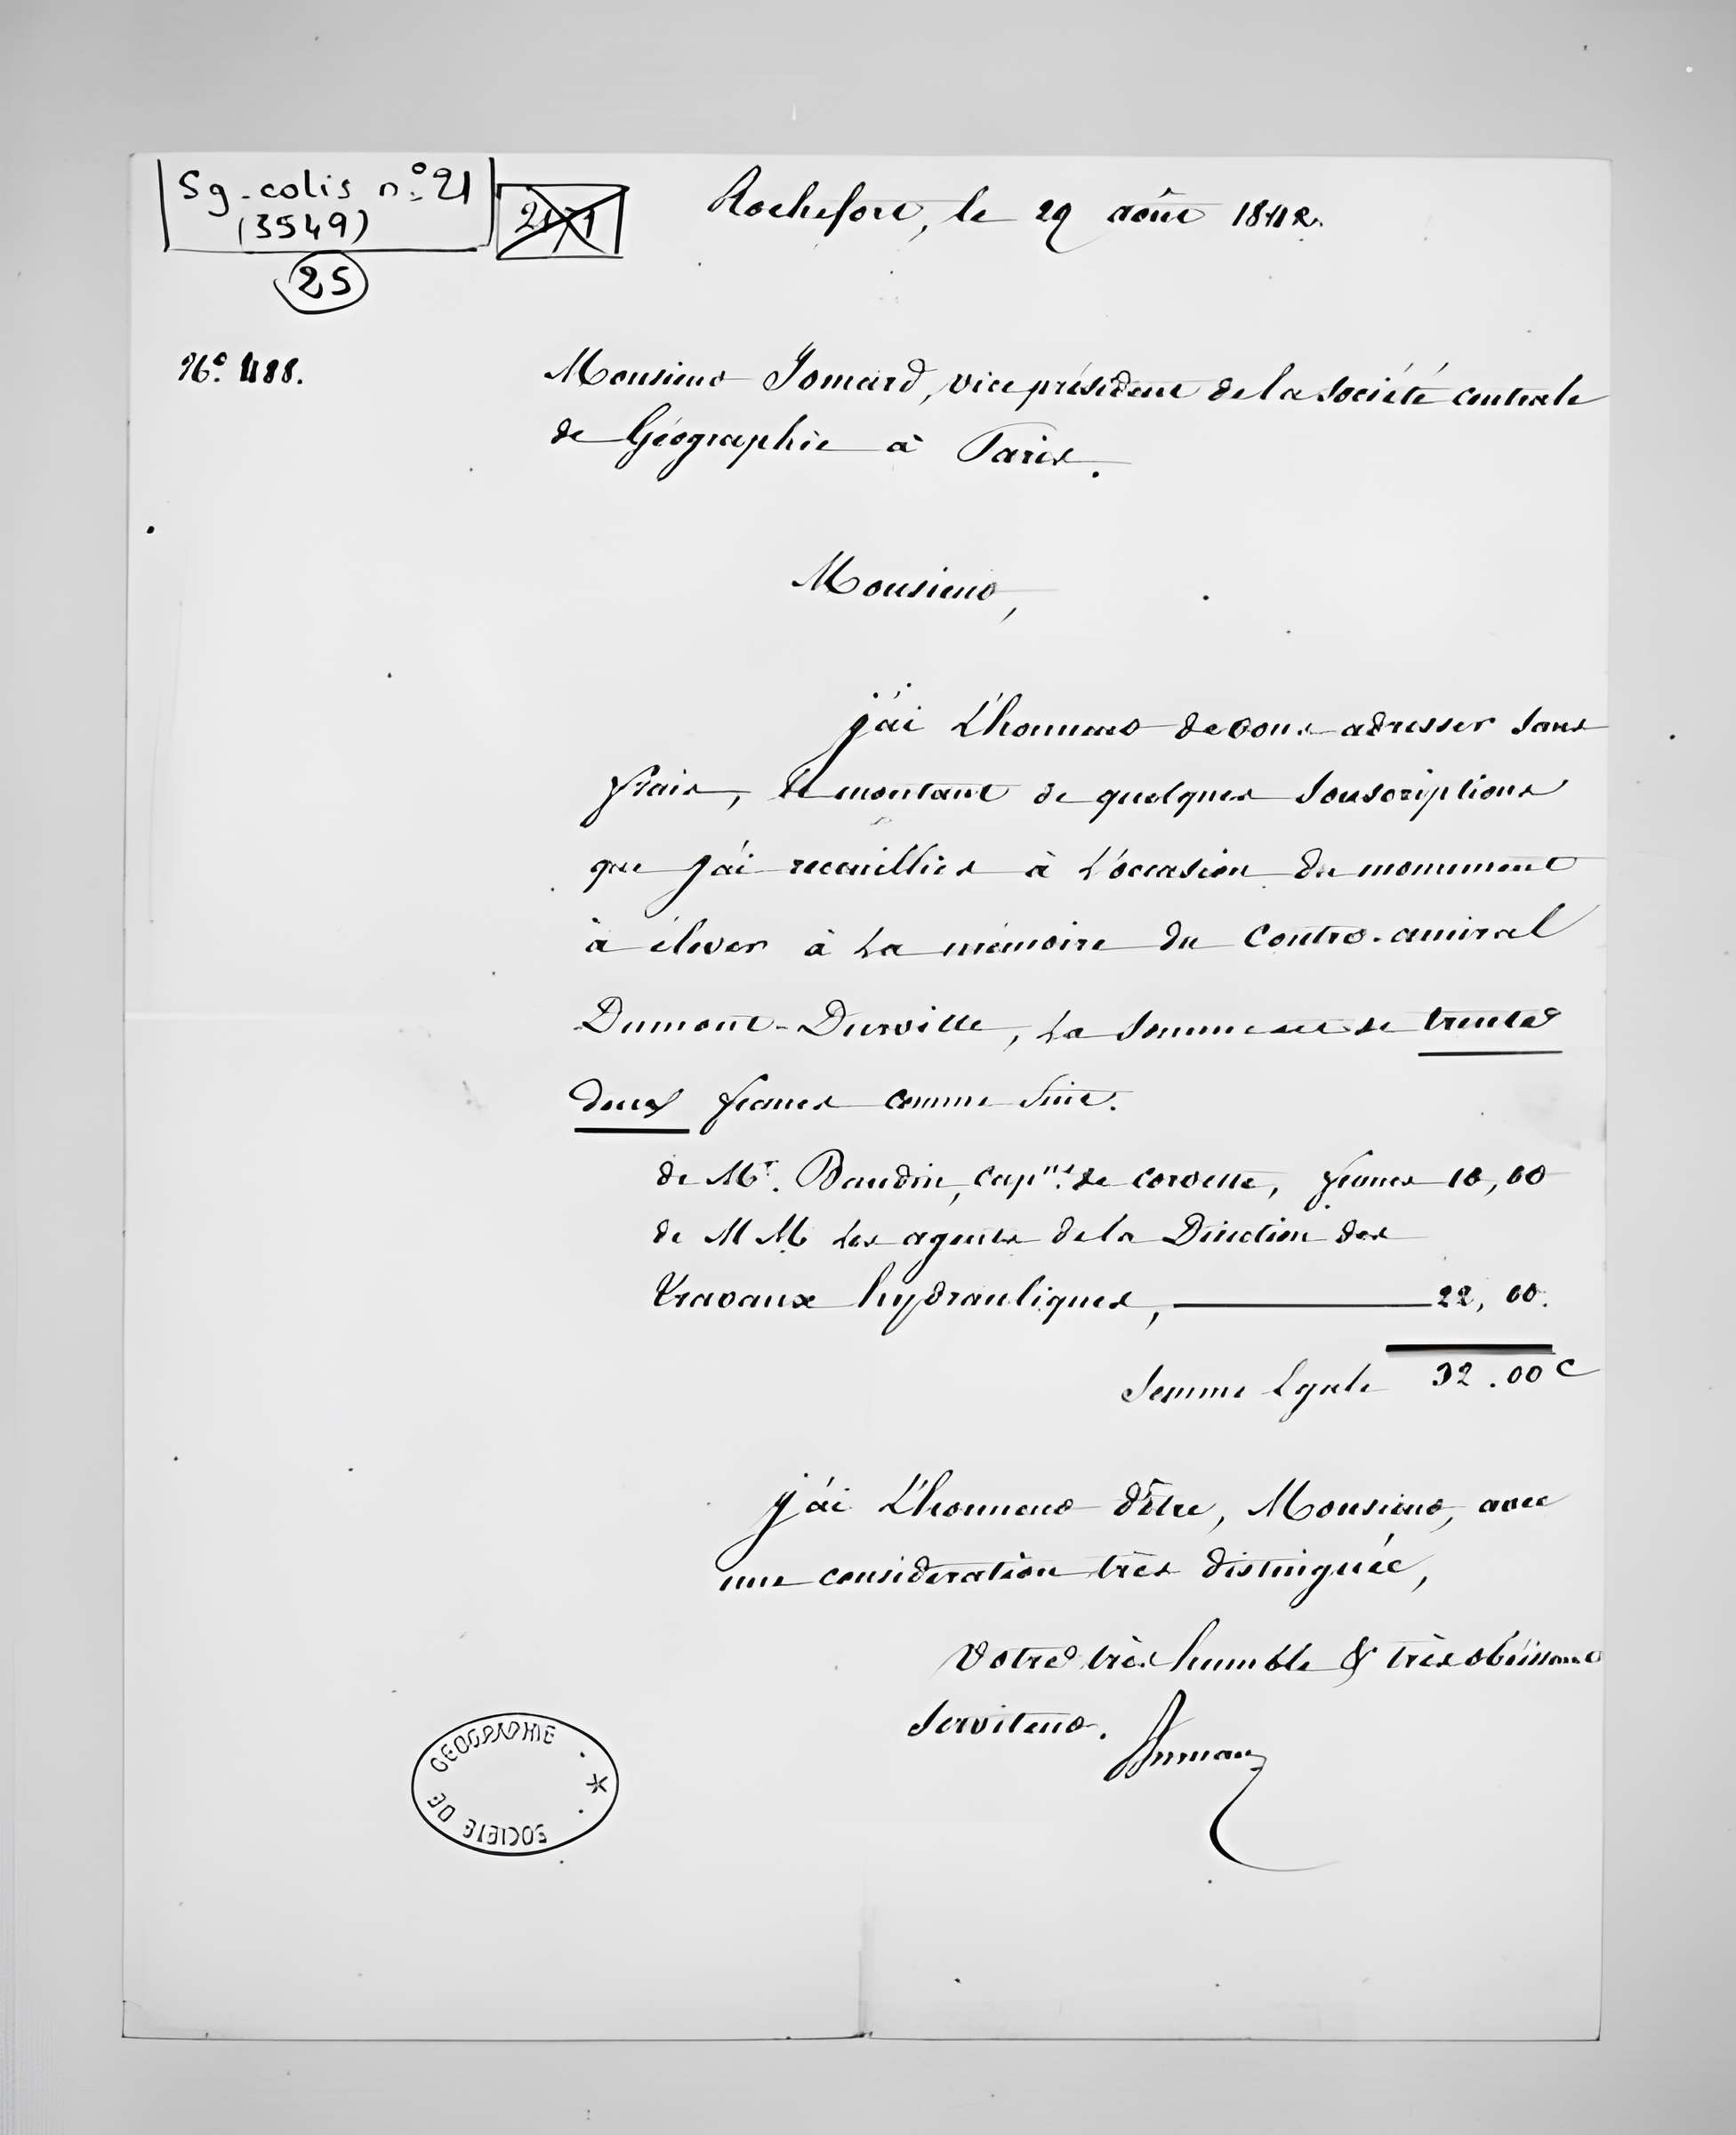 Sg. colis n° 21
(3549)
25
Rochefort, le 29 août 1842.
N°. 488.
Monsieur Jomard, vice président de la Société centrale
de Géographie à Paris.
Monsieur,
j'ai L'honneur de vous adresser sans
frais, le montant de quelques Souscriptions
que j'ai recueillies à L'occasion du monument
à élever à La mémoire du Contre-amiral
Dumont-Durville, La Somme est de trente
deux francs comme Suit.
de Mr. Baudin, capne. de corvette, francs 10,00
de MM. Les agents de la Direction des
travaux hydrauliques, 22,00.
Somme Egale 32.00 c
j'ai L'honneur d'être, Monsieur, avec
une considération très distinguée,
Votre très humble & très obéissant
Serviteur.
SOCIETE DE GEOGRAPHIE